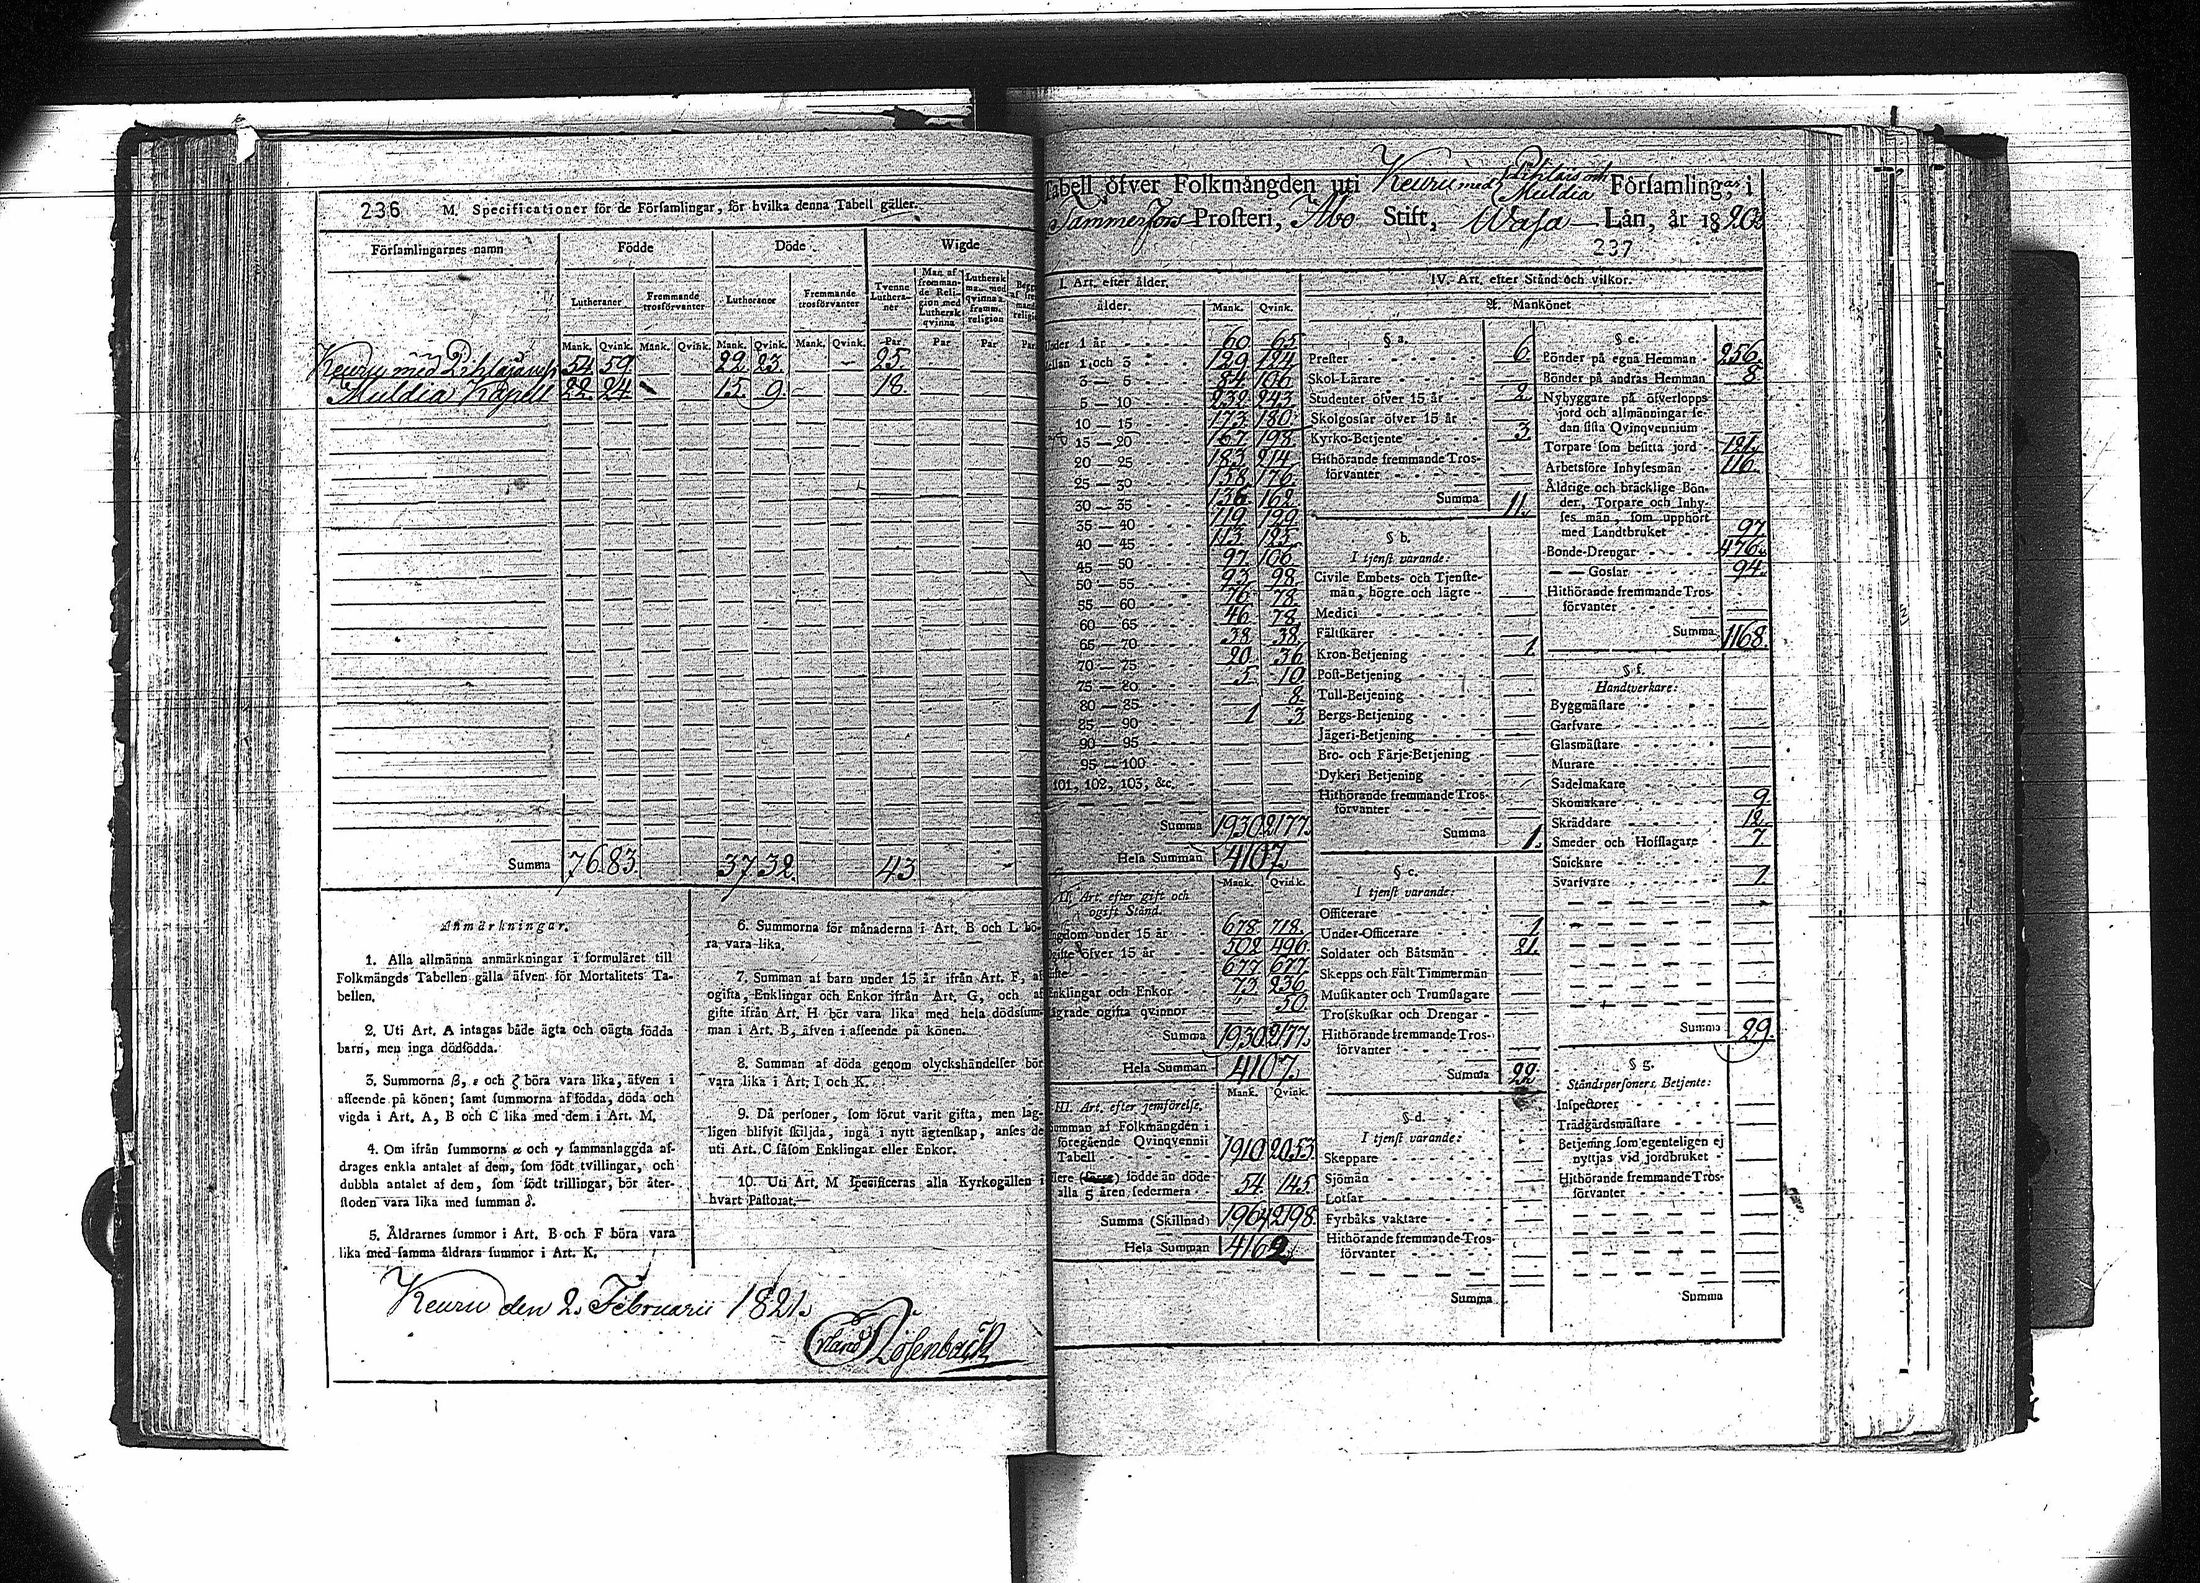 236 M. Specificationer för de Församlingar, för hvilka denna Tabell gäller.
Församlingarnes namn Födde Döde Wigde
Lutheraner Fremmande trosförvanter Lutheraner Fremmande trosförvanter Tvenne Lutheraner Man af fremmande Religion med Luthersk qvinna Luthersk man med qvinna af fremm. religion
Mank. Qvink. Mank. Qvink. Mank. Qvink. Mank. Qvink. Par Par Par Par
Keuru med Pihlajavesi 54. 59. 22. 23. 25.
Muldia Kapell 22. 24. 15. 9. 18.
Summa 76. 83. 37. 32. 43
Anmärkningar.
1. Alla allmänna anmärkningar i formuläret till
Folkmängds Tabellen gälla äfven för Mortalitets Ta-
bellen.
2. Uti Art. A intagas både ägta och oägta födda
barn, men inga dödfödda.
3. Summorna β, ε och ζ böra vara lika, äfven i
afseende på könen; samt summorna af födda, döda och
vigda i Art. A, B och C lika med dem i Art. M.
4. Om ifrån summorna α och γ sammanlaggda af-
drages enkla antalet af dem, som födt tvillingar, och
dubbla antalet af dem, som födt trillingar, bör åter-
stoden vara lika med summan δ.
5. Åldrarnes summor i Art. B och F böra vara
lika med samma åldrars summor i Art. K.
6. Summorna för månaderna i Art. B och L bö-
ra vara lika.
7. Summan af barn under 15 år ifrån Art. F, af
ogifta, Enklingar och Enkor ifrån Art. G, och af
gifte ifrån Art. H bör vara lika med hela dödssum-
man i Art. B, äfven i afseende på könen.
8. Summan af döda genom olyckshändelser bör
vara lika i Art. I och K.
9. Då personer, som förut varit gifta, men lag-
ligen blifvit skiljda, ingå i nytt ägtenskap, anses de
uti Art. C såsom Enklingar eller Enkor.
10. Uti Art. M specificeras alla Kyrkogällen i
hvart Pastorat.
Keuru den 2. Februarii 1821.
Erland Rosenback
Tabell öfver Folkmängden uti Keuru med Pihlais och Muldia Församlingar i
Tammerfors Prosteri, Åbo Stift, Wasa Län, år 1820.
237
I. Art. efter ålder.
ålder. Mank. Qvink.
Under 1 år 60. 65
Mellan 1 och 3 129. 124.
3 — 5 84. 106.
5 — 10 232. 243.
10 — 15 173. 180.
15 — 20 167. 198.
20 — 25 183. 214.
25 — 30 158. 176.
30 — 35 136. 162.
35 — 40 119. 129.
40 — 45 113. 123.
45 — 50 97. 106.
50 — 55 93. 98.
55 — 60 76. 78.
60 — 65 46. 78.
65 — 70 38. 38.
70 — 75 20. 36.
75 — 80 5. 10
80 — 85 8.
85 — 90 1 3
90 — 95
95 — 100
101, 102, 103, &c.
Summa 1930 2177.
Hela Summan 4107.
II. Art. efter gift och ogift Stånd. Mank. Qvink.
Ungdom under 15 år 678. 718.
Ogifte öfver 15 år 502. 496.
Gifte 677. 677.
Enklingar och Enkor 73. 236.
Lägrade ogifta qvinnor 50.
Summa 1930 2177.
Hela Summan 4107.
III. Art. efter jemförelse. Mank. Qvink.
Summan af Folkmängden i
föregående Qvinqvennii
Tabell 1910 2053
flere födde än döde
alla 5 åren sedermera 54. 145.
Summa (Skillnad) 1964 2198.
Hela Summan 4162.
IV. Art. efter Stånd och vilkor.
A. Mankönet
§ a.
Prester 6.
Skol-Lärare
Studenter öfver 15 år 2
Skolgossar öfver 15 år
Kyrko-Betjente 3
Hithörande fremmande Tros-
förvanter
Summa 11.
§ b.
I tjenst varande:
Civile Embets- och Tjenste-
män, högre och lägre
Medici
Fältskärer
Kron-Betjening 1.
Post-Betjening
Tull-Betjening
Bergs-Betjening
Jägeri-Betjening
Bro- och Färje-Betjening
Dykeri Betjening
Hithörande fremmande Tros-
förvanter
Summa 1.
§ c.
I tjenst varande:
Officerare
Under-Officerare 1
Soldater och Båtsmän 21.
Skepps och Fält Timmermän
Musikanter och Trumslagare
Trosskuskar och Drengar
Hithörande fremmande Tros-
förvanter
Summa 22
§ d.
I tjenst varande:
Skeppare
Sjömän
Lotsar
Fyrbåks vaktare
Hithörande fremmande Tros-
förvanter
Summa
§ e.
Bönder på egna Hemman 256.
Bönder på andras Hemman 8
Nybyggare på öfverlopps
jord och allmänningar se-
dan sista Qvinqvennium
Torpare som besitta jord 121.
Arbetsföre Inhysesmän 116.
Åldrige och bräcklige Bön-
der, Torpare och Inhy-
ses män, som upphört
med Landtbruket 97.
Bonde-Drengar 476.
— — Gossar 94.
Hithörande fremmande Tros-
förvanter
Summa 1168.
§ f.
Handtverkare:
Byggmästare
Garfvare
Glasmästare
Murare
Sadelmakare
Skomakare 9.
Skräddare 12.
Smeder och Hofslagare 7
Snickare
Svarfvare 1.
Summa 29.
§ g.
Ståndspersoners Betjente:
Inspectorer
Trädgårdsmästare
Betjening som egenteligen ej
nyttjas vid jordbruket
Hithörande fremmande Tros-
förvanter
Summa